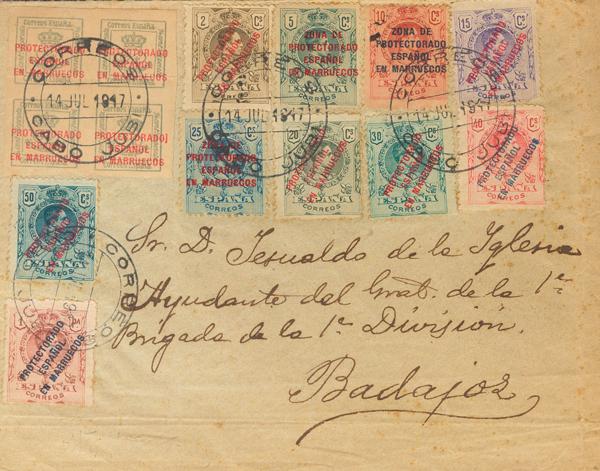 CORREOS ESPAÑA CORREOS ESPAÑA
PROTECTORADO PROTECTORADO
ESPAÑOL ESPAÑOL
EN MARRUECOS EN MARRUECOS
CORREOS
14 JUL 1917
CABO JUBI
PROTECTORADO PROTECTORADO
ESPAÑOL ESPAÑOL
EN MARRUECOS EN MARRUECOS
2 Cs
PROTECTORADO
ESPAÑOL
EN MARRUECOS
5 Cs
ZONA DE
PROTECTORADO
ESPAÑOL
EN MARRUECOS
10 Cs
ZONA DE
PROTECTORADO
ESPAÑOL
EN MARRUECOS
15 Cs
PROTECTORADO
ESPAÑOL
EN MARRUECOS
CORREOS
14 JUL 1917
CABO JUBI
CORREOS
14 JUL 1917
CABO JUBI
25 Cs
ZONA DE
PROTECTORADO
ESPAÑOL
EN MARRUECOS
ESPAÑA
CORREOS
20 Cs
PROTECTORADO
ESPAÑOL
EN MARRUECOS
ESPAÑA
CORREOS
30 Cs
PROTECTORADO
ESPAÑOL
EN MARRUECOS
ESPAÑA
CORREOS
40 Cs
PROTECTORADO
ESPAÑOL
EN MARRUECOS
ESPAÑA
CORREOS
50 Cs
PROTECTORADO
ESPAÑOL
EN MARRUECOS
ESPAÑA
CORREOS
CORREOS
PROTECTORADO
ESPAÑOL
EN MARRUECOS
ESPAÑA
CORREOS
Sr. D. Jesualdo de la Iglesia
Ayudante del Gral. de la 1ª
Brigada de la 1ª División.
Badajoz